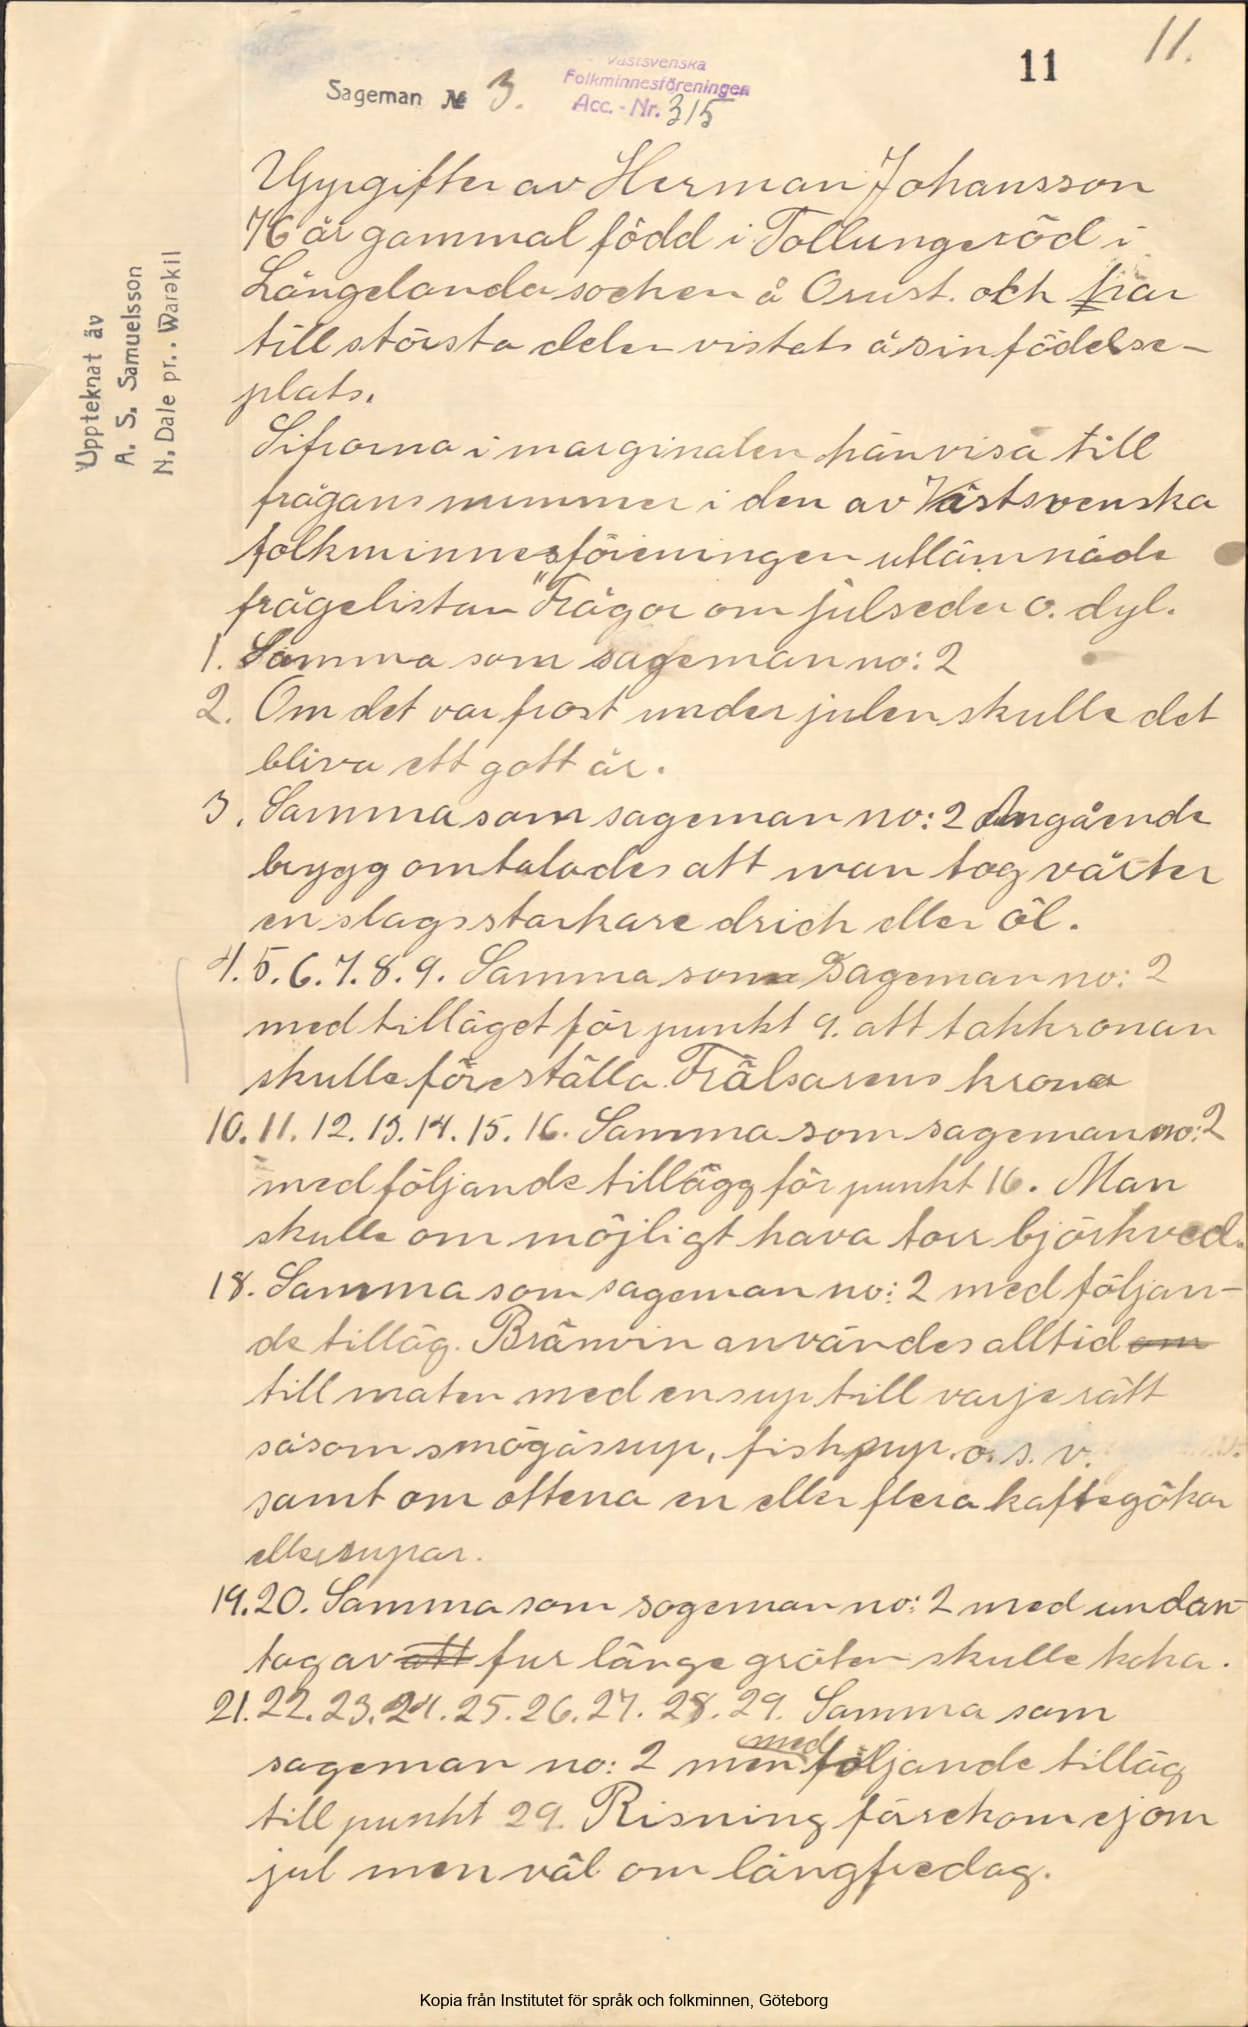 11.
11
Sageman № 3.
Västsvenska
Folkminnesföreningen
Acc.-Nr. 315
Uppteknat äv
A. S. Samuelsson
N. Dale pr. Warekil
Uppgifter av Herman Johansson
76 år gammal född i Tollungeröd i
Långelanda socken å Orust. och har
till största delen vistats å sin födelse-
plats.
Sifrorna i marginalen hänvisa till
frågans nummer i den av Västsvenska
folkminnesföreningen utlämnade
frågelistan "Frågor om julseder o. dyl.
1. Samma som sageman no: 2
2. Om det var frost under julen skulle det
bliva ett gott år.
3. Samma som sageman no: 2 Angående
brygg omtalades att man tog vörter
en slags starkare drick eller öl.
4. 5. 6. 7. 8. 9. Samma som Sageman no: 2
med tilläget för punkt 9. att takkronan
skulle föreställa Frälsarens krona
10. 11. 12. 13. 14. 15. 16. Samma som sageman no: 2
med följande tillägg för punkt 16. Man
skulle om möjligt hava torr björkved.
18. Samma som sageman no: 2 med följan-
de tilläg. Bränvin användes alltid om
till maten med en sup till varje rätt
såsom smögåssup, fisksup. o. s. v.
samt om ottena en eller flera kaffegökar
eller supar.
19. 20. Samma som sageman no: 2 med undan-
tag av att hur länge gröten skulle koka.
21. 22. 23. 24. 25. 26. 27. 28. 29. Samma som
sageman no: 2 men med följande tilläg
till punkt 29. Risning förekom ej om
jul men väl om långfredag.
Kopia från Institutet för språk och folkminnen, Göteborg